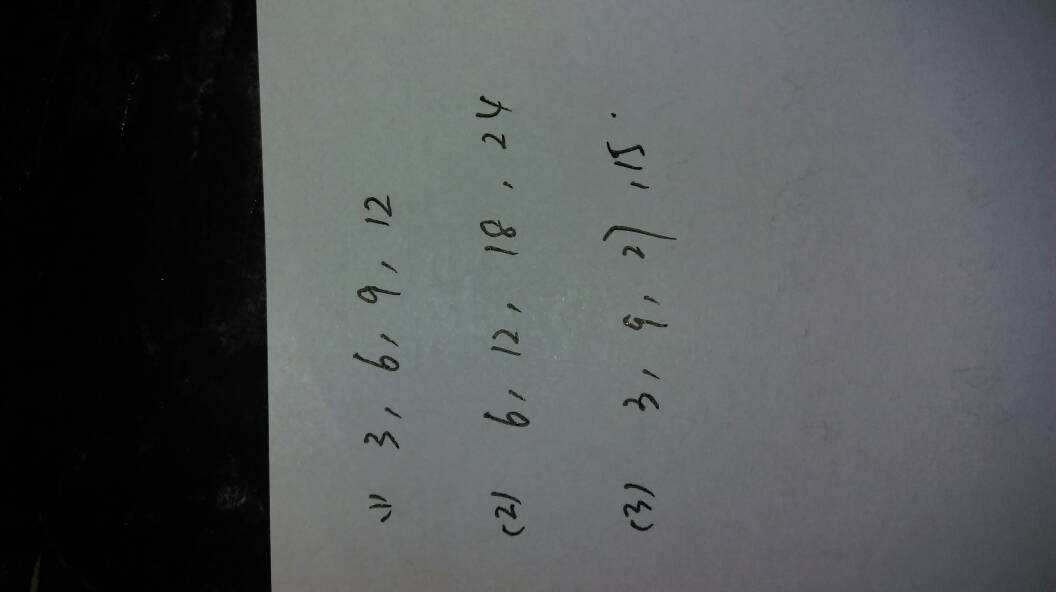 (1) 3, 6, 9, 12
(2) 6, 12, 18, 24
(3) 3, 9, 27, 15.